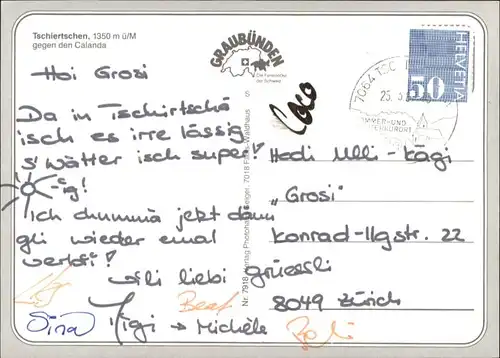 Tschiertschen, 1350 m ü/M
gegen den Calanda
GRAUBÜNDEN
Die Ferienecke
der Schweiz
HELVETIA
50
7064
25.
SOMMER-UND
Hoi Grosi
Da in Tschirtschä
isch es irre lässig
s'wätter isch super!
-ig!
Ich chummä jetzt dann
gli wieder emal
verbi!
Vili liebi grüessli
Migi → Michèle
Sina
Beat
Coco
S
Hedi Ulli-Kägi
„Grosi"
Konrad-Ilgstr. 22
8049 Zürich
Nr. 7918 Verlag Photohaus Geiger, 7018 Flims-Waldhaus